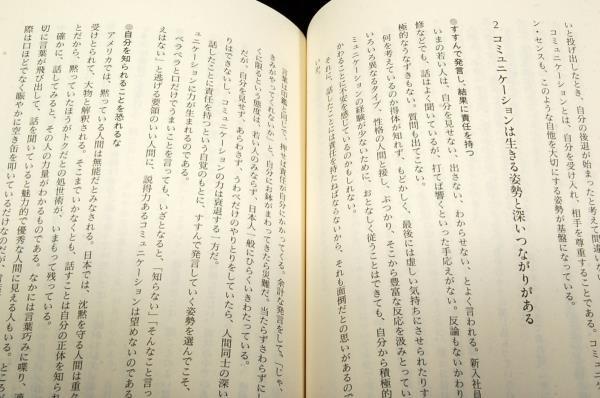 いと投げ出したとき、自分の後退が始まっていると
コミュニケーションとは、自分を受け入れ、相手を尊重することである。コミュ
ン・センスも、このような自他を大切にする姿勢が基盤になっている。
2 コミュニケーションは生きる姿勢と深いつながりがある
●すすんで発言し、結果に責任を持つ
いまの若い人は、自分を見せない、出さない、わからせない、とよく言われる。新入社員
修などでも、話はよく聞いているが、打てば響くといった手応えがない。反論もないかわり
極的なうなずきもない。質問も出てこない。
何を考えているのか得体が知れず、もどかしく、最後には虚しい気持ちにさせられたりす
いろいろ異なるタイプ、性格の人間と接し、ぶつかり、そこから豊富な反応を汲みとってい
ミュニケーションの経験が少ないために、おとなしく従うことはできても、自分から積極的
かわることに不安を感じているのかもしれない。
それに、話したことには責任を持たねばならないから、それも面倒だとの思いがあるので
いか。
言葉は印鑑と同じで、押せば責任が自分にかかってくる。余計な発言をして、「じゃ、
きみがやってくれないか」と、自分にお鉢がまわってきたら災難だ。当たらずさわらずに
くに限るという態度は、若い人のみならず、日本人一般にひろくいきわたっている。
だが、自分を見せず、あらわさず、うわべだけのやりとりをしていたら、人間同士の深い
りはできないし、コミュニケーションの力は衰退する一方だ。
話したことに責任を持つという自覚のもとに、すすんで発言していく姿勢を選んでこそ、
ュニケーションに力が生まれるのである。
ペラペラと口だけでうまいことを言っても、いざとなると、「知らない」「そんなこと言っ
えはない」と逃げる要領のいい人間に、説得力あるコミュニケーションは望めないのである
●自分を知られることを恐れるな
アメリカでは、黙っている人間は無能だとみなされる。日本では、沈黙を守る人間は重々
受けとられて、大物と解釈される。そこまでいかなくとも、話すことは自分の正体を知られ
とだから、黙っていたほうがトクだとの処世術が、いまもって残っている。
確かに、話してみると、その人の力量がわかるものである。なかには言葉巧みに喋り、適
切に言葉が飛び出して、話を聞いていると魅力的で優秀な人間に見える人もいる。ところが
際は口ほどでなく賑やかに空き缶を叩いているだけなのだが、